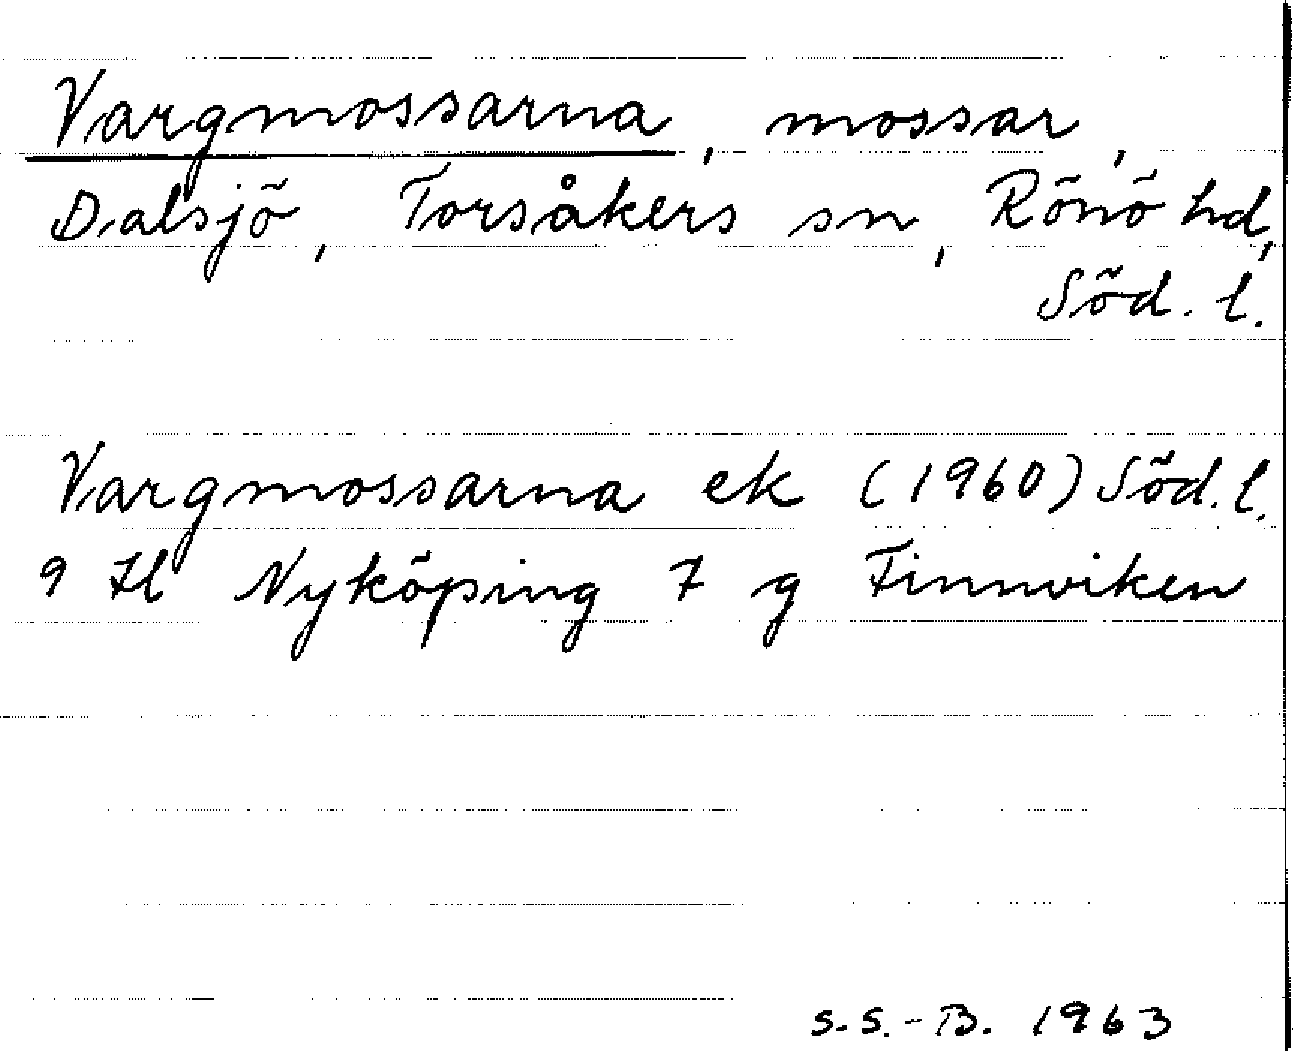 Vargmossarna, mossar,
Dalsjö, Torsåkers sn, Rönö hd,
Söd. l.
Vargmossarna ek (1960) Söd. l.
9 H Nyköping 7 g Finnviken
S.S.-B. 1963